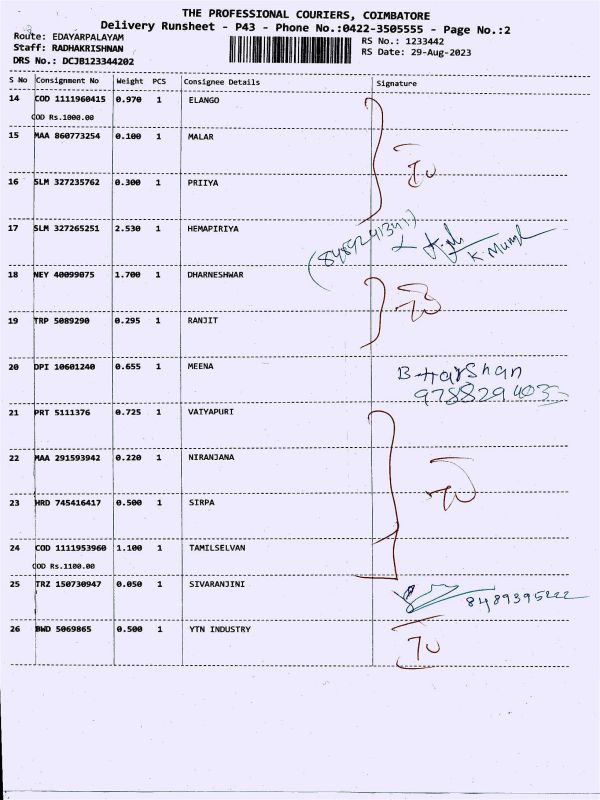 THE PROFESSIONAL COURIERS, COIMBATORE
Delivery Runsheet - P43 - Phone No.:0422-3505555 - Page No.:2
Route: EDAYARPALAYAM
Staff: RADHAKRISHNAN
DRS No.: DCJB123344202
RS No.: 1233442
RS Date: 29-Aug-2023
S No Consignment No Weight PCS Consignee Details Signature
14 COD 1111960415 0.970 1 ELANGO
COD Rs.1000.00
15 MAA 860773254 0.100 1 MALAR
16 SLM 327235762 0.300 1 PRIIYA
17 SLM 327265251 2.530 1 HEMAPIRIYA
18 NEY 40099075 1.700 1 DHARNESHWAR
19 TRP 5089290 0.295 1 RANJIT
20 DPI 10601240 0.655 1 MEENA B-Harshan
21 PRT 5111376 0.725 1 VAIYAPURI
22 MAA 291593942 0.220 1 NIRANJANA
23 HRD 745416417 0.500 1 SIRPA
24 COD 1111953960 1.100 1 TAMILSELVAN
COD Rs.1100.00
25 TRZ 150730947 0.050 1 SIVARANJINI
26 BWD 5069865 0.500 1 YTN INDUSTRY